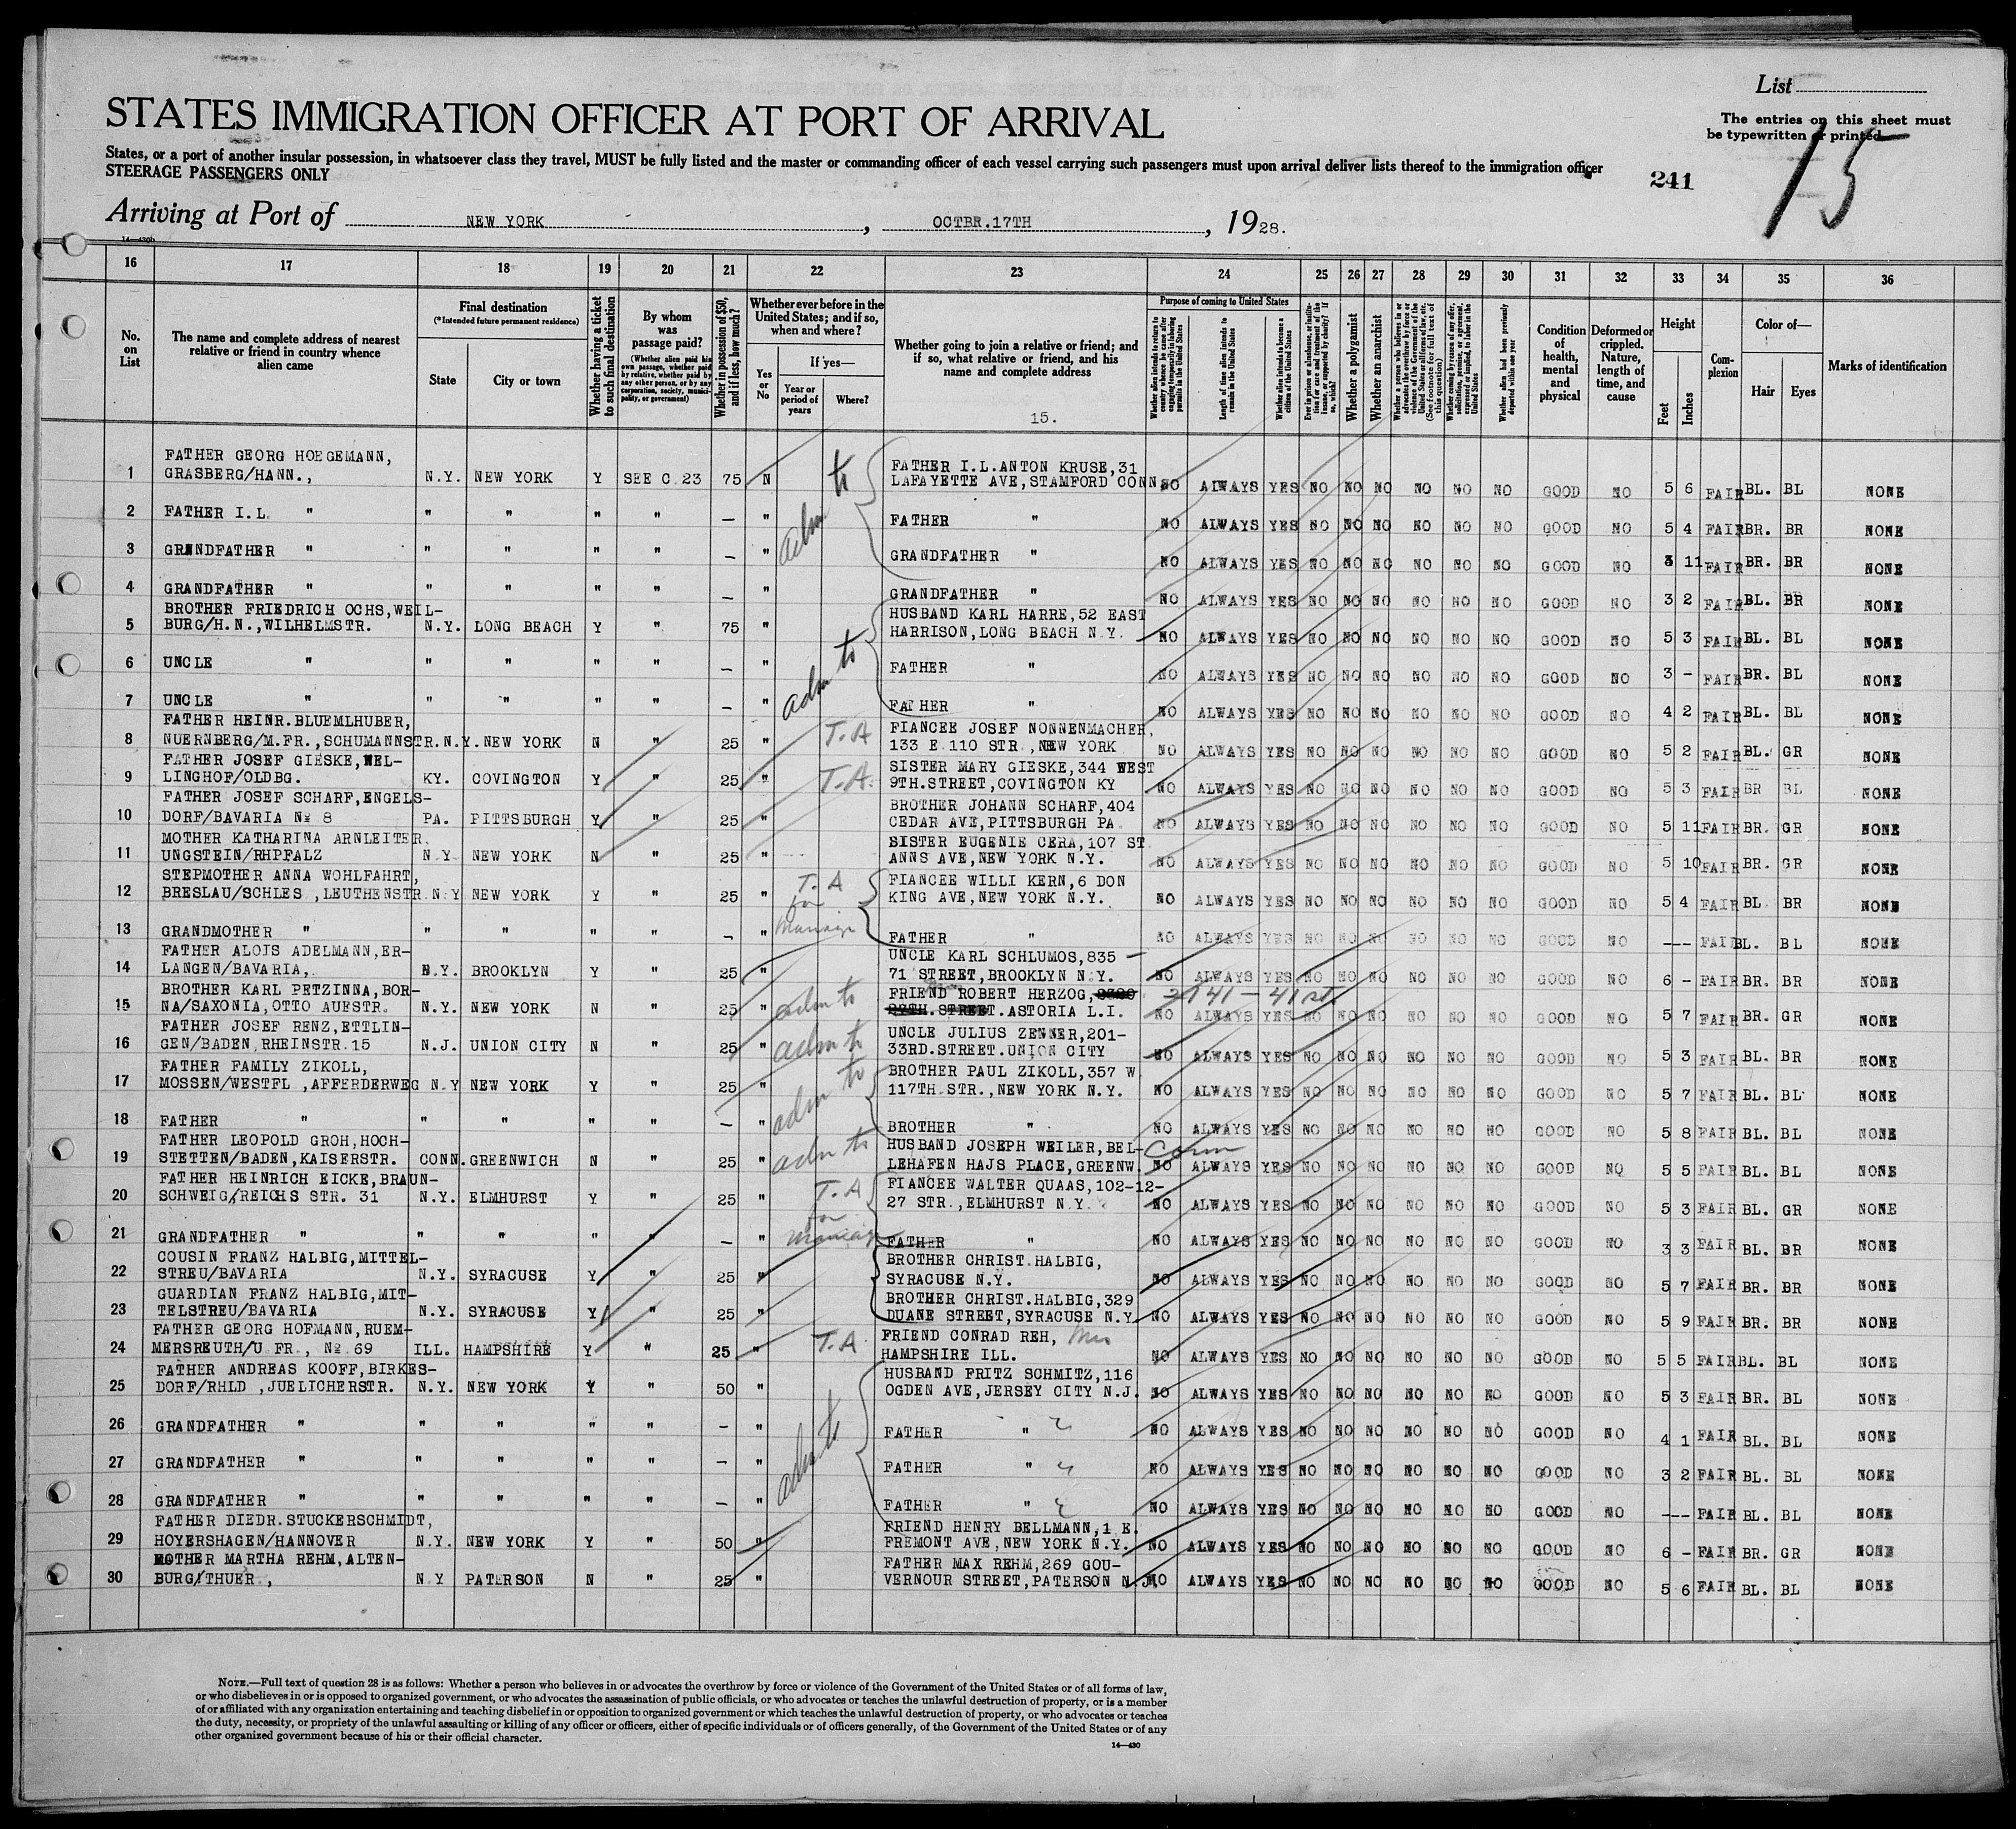 List
STATES IMMIGRATION OFFICER AT PORT OF ARRIVAL
The entries on this sheet must
be typewritten or printed
States, or a port of another insular possession, in whatsoever class they travel, MUST be fully listed and the master or commanding officer of each vessel carrying such passengers must upon arrival deliver lists thereof to the immigration officer
STEERAGE PASSENGERS ONLY
241
15
Arriving at Port of NEW YORK, OCTBR.17TH, 1928.
14—430b
16 17 18 19 20 21 22 23 24 25 26 27 28 29 30 31 32 33 34 35 36
No. on List
The name and complete address of nearest relative or friend in country whence alien came
Final destination
(*Intended future permanent residence)
State
City or town
Whether having a ticket to such final destination
By whom was passage paid?
(Whether alien paid his own passage, whether paid by relative, whether paid by any other person, or by any corporation, society, municipality, or government)
Whether in possession of $50, and if less, how much?
Whether ever before in the United States; and if so, when and where?
Yes or No
If yes—
Year or period of years
Where?
Whether going to join a relative or friend; and if so, what relative or friend, and his name and complete address
15.
Purpose of coming to United States
Whether alien intends to return to country whence he came after engaging temporarily in laboring pursuits in the United States
Length of time alien intends to remain in the United States
Whether alien intends to become a citizen of the United States
Ever in prison or almshouse, or institution for care and treatment of the insane, or supported by charity? If so, which?
Whether a polygamist
Whether an anarchist
Whether a person who believes in or advocates the overthrow by force or violence of the Government of the United States or all forms of law, etc. (See footnote for full text of this question)
Whether coming by reason of any offer, solicitation, promise, or agreement, expressed or implied, to labor in the United States
Whether alien had been previously deported within one year
Condition of health, mental and physical
Deformed or crippled. Nature, length of time, and cause
Height
Feet
Inches
Complexion
Color of—
Hair
Eyes
Marks of identification
1 FATHER GEORG HOEGEMANN, GRASBERG/HANN., N.Y. NEW YORK Y SEE C 23 75 N adm to FATHER I.L.ANTON KRUSE,31 LAFAYETTE AVE,STAMFORD CONN. NO ALWAYS YES NO NO NO NO NO NO GOOD NO 5 6 FAIR BL. BL NONE
2 FATHER I.L. " " " " " — " FATHER " NO ALWAYS YES NO NO NO NO NO NO GOOD NO 5 4 FAIR BR. BR NONE
3 GRANDFATHER " " " " " — " GRANDFATHER " NO ALWAYS YES NO NO NO NO NO NO GOOD NO 3 11 FAIR BR. BR NONE
4 GRANDFATHER " " " " " — " GRANDFATHER " NO ALWAYS YES NO NO NO NO NO NO GOOD NO 3 2 FAIR BL. BR NONE
5 BROTHER FRIEDRICH OCHS,WEILBURG/H.N.,WILHELMSTR. N.Y. LONG BEACH Y " 75 " adm to HUSBAND KARL HARRE,52 EAST HARRISON,LONG BEACH N.Y. NO ALWAYS YES NO NO NO NO NO NO GOOD NO 5 3 FAIR BL. BL NONE
6 UNCLE " " " " " — " FATHER " NO ALWAYS YES NO NO NO NO NO NO GOOD NO 3 - FAIR BR. BL NONE
7 UNCLE " " " " " — " FATHER " NO ALWAYS YES NO NO NO NO NO NO GOOD NO 4 2 FAIR BL. BL NONE
8 FATHER HEINR.BLUEMLHUBER, NUERNBERG/M.FR.,SCHUMANNSTR. N.Y. NEW YORK N " 25 " T.A FIANCEE JOSEF NONNENMACHER, 133 E 110 STR.,NEW YORK NO ALWAYS YES NO NO NO NO NO NO GOOD NO 5 2 FAIR BL. GR NONE
9 FATHER JOSEF GIESKE,WELLINGHOF/OLDBG. KY. COVINGTON Y " 25 " T.A. SISTER MARY GIESKE,344 WEST 9TH.STREET,COVINGTON KY NO ALWAYS YES NO NO NO NO NO NO GOOD NO 5 3 FAIR BR BL NONE
10 FATHER JOSEF SCHARF,ENGELSDORF/BAVARIA № 8 PA. PITTSBURGH Y " 25 " BROTHER JOHANN SCHARF,404 CEDAR AVE,PITTSBURGH PA. NO ALWAYS YES NO NO NO NO NO NO GOOD NO 5 11 FAIR BR. GR NONE
11 MOTHER KATHARINA ARNLEITER, UNGSTEIN/RHPFALZ N.Y. NEW YORK N " 25 " SISTER EUGENIE CERA,107 ST ANNS AVE,NEW YORK N.Y. NO ALWAYS YES NO NO NO NO NO NO GOOD NO 5 10 FAIR BR. GR NONE
12 STEPMOTHER ANNA WOHLFAHRT, BRESLAU/SCHLES ,LEUTHENSTR N.Y NEW YORK Y " 25 " T.A for Marriage FIANCEE WILLI KERN,6 DON KING AVE,NEW YORK N.Y. NO ALWAYS YES NO NO NO NO NO NO GOOD NO 5 4 FAIR BL BR NONE
13 GRANDMOTHER " " " " " — " FATHER " NO ALWAYS YES NO NO NO NO NO NO GOOD NO --- FAIR BL. BL NONE
14 FATHER ALOIS ADELMANN,ERLANGEN/BAVARIA, N.Y. BROOKLYN Y " 25 " UNCLE KARL SCHLUMOS,835 — 71 STREET,BROOKLYN N.Y. NO ALWAYS YES NO NO NO NO NO NO GOOD NO 6 - FAIR BR. BR NONE
15 BROTHER KARL PETZINNA,BORNA/SAXONIA,OTTO AUESTR. N.Y. NEW YORK N " 25 " adm to FRIEND ROBERT HERZOG, STREET.ASTORIA L.I. 2141 - 41 st. NO ALWAYS YES NO NO NO NO NO NO GOOD NO 5 7 FAIR BR. GR NONE
16 FATHER JOSEF RENZ,ETTLINGEN/BADEN,RHEINSTR.15 N.J. UNION CITY N " 25 " adm to UNCLE JULIUS ZENNER,201- 33RD.STREET.UNION CITY NO ALWAYS YES NO NO NO NO NO NO GOOD NO 5 3 FAIR BL. BR NONE
17 FATHER FAMILY ZIKOLL, MOSSEN/WESTFL ,AFFERDERWEG N.Y NEW YORK Y " 25 " adm to BROTHER PAUL ZIKOLL,357 W. 117TH.STR.,NEW YORK N.Y. NO ALWAYS YES NO NO NO NO NO NO GOOD NO 5 7 FAIR BL. BL NONE
18 FATHER " " " " " — " BROTHER " NO ALWAYS YES NO NO NO NO NO NO GOOD NO 5 8 FAIR BL. BL NONE
19 FATHER LEOPOLD GROH,HOCHSTETTEN/BADEN,KAISERSTR. CONN. GREENWICH N " 25 " adm to HUSBAND JOSEPH WEILER,BELLEHAFEN HAJS PLACE,GREENW. Conn NO ALWAYS YES NO NO NO NO NO NO GOOD NO 5 5 FAIR BL. BL NONE
20 FATHER HEINRICH EICKE,BRAUNSCHWEIG/REICHS STR. 31 N.Y. ELMHURST Y " 25 " T.A for marriage FIANCEE WALTER QUAAS,102-12- 27 STR.,ELMHURST N.Y. NO ALWAYS YES NO NO NO NO NO NO GOOD NO 5 3 FAIR BL. GR NONE
21 GRANDFATHER " " " " " — " FATHER " NO ALWAYS YES NO NO NO NO NO NO GOOD NO 3 3 FAIR BL. BR NONE
22 COUSIN FRANZ HALBIG,MITTELSTREU/BAVARIA N.Y. SYRACUSE Y " 25 " BROTHER CHRIST.HALBIG, SYRACUSE N.Y. NO ALWAYS YES NO NO NO NO NO NO GOOD NO 5 7 FAIR BR. BR NONE
23 GUARDIAN FRANZ HALBIG,MITTELSTREU/BAVARIA N.Y. SYRACUSE Y " 25 " BROTHER CHRIST.HALBIG,329 DUANE STREET,SYRACUSE N.Y. NO ALWAYS YES NO NO NO NO NO NO GOOD NO 5 9 FAIR BR. BR NONE
24 FATHER GEORG HOFMANN,RUEMMERSREUTH/U FR., № 69 ILL. HAMPSHIRE Y " 25 " T.A FRIEND CONRAD REH, HAMPSHIRE ILL. NO ALWAYS YES NO NO NO NO NO NO GOOD NO 5 5 FAIR BL. BL NONE
25 FATHER ANDREAS KOOFF,BIRKESDORF/RHLD ,JUELICHERSTR. N.Y. NEW YORK Y " 50 " adm to HUSBAND FRITZ SCHMITZ,116 OGDEN AVE,JERSEY CITY N.J. NO ALWAYS YES NO NO NO NO NO NO GOOD NO 5 3 FAIR BR. BL NONE
26 GRANDFATHER " " " " " — " FATHER " NO ALWAYS YES NO NO NO NO NO NO GOOD NO 4 1 FAIR BL. BL NONE
27 GRANDFATHER " " " " " — " FATHER " NO ALWAYS YES NO NO NO NO NO NO GOOD NO 3 2 FAIR BL. BL NONE
28 GRANDFATHER " " " " " — " FATHER " NO ALWAYS YES NO NO NO NO NO NO GOOD NO --- FAIR BL. BL NONE
29 FATHER DIEDR.STUCKERSCHMIDT, HOYERSHAGEN/HANNOVER N.Y. NEW YORK Y " 50 " FRIEND HENRY BELLMANN,1 E. FREMONT AVE,NEW YORK N.Y. NO ALWAYS YES NO NO NO NO NO NO GOOD NO 6 - FAIR BR. GR NONE
30 MOTHER MARTHA REHM,ALTENBURG/THUER., N.Y PATERSON N " 25 " FATHER MAX REHM,269 GOUVERNOUR STREET,PATERSON N.J. NO ALWAYS YES NO NO NO NO NO NO GOOD NO 5 6 FAIR BL. BL NONE
NOTE.—Full text of question 28 is as follows: Whether a person who believes in or advocates the overthrow by force or violence of the Government of the United States or of all forms of law,
or who disbelieves in or is opposed to organized government, or who advocates the assassination of public officials, or who advocates or teaches the unlawful destruction of property, or is a member
of or affiliated with any organization entertaining and teaching disbelief in or opposition to organized government or which teaches the unlawful destruction of property, or who advocates or teaches
the duty, necessity, or propriety of the unlawful assaulting or killing of any officer or officers, either of specific individuals or of officers generally, of the Government of the United States or of any
other organized government because of his or their official character.
14—430